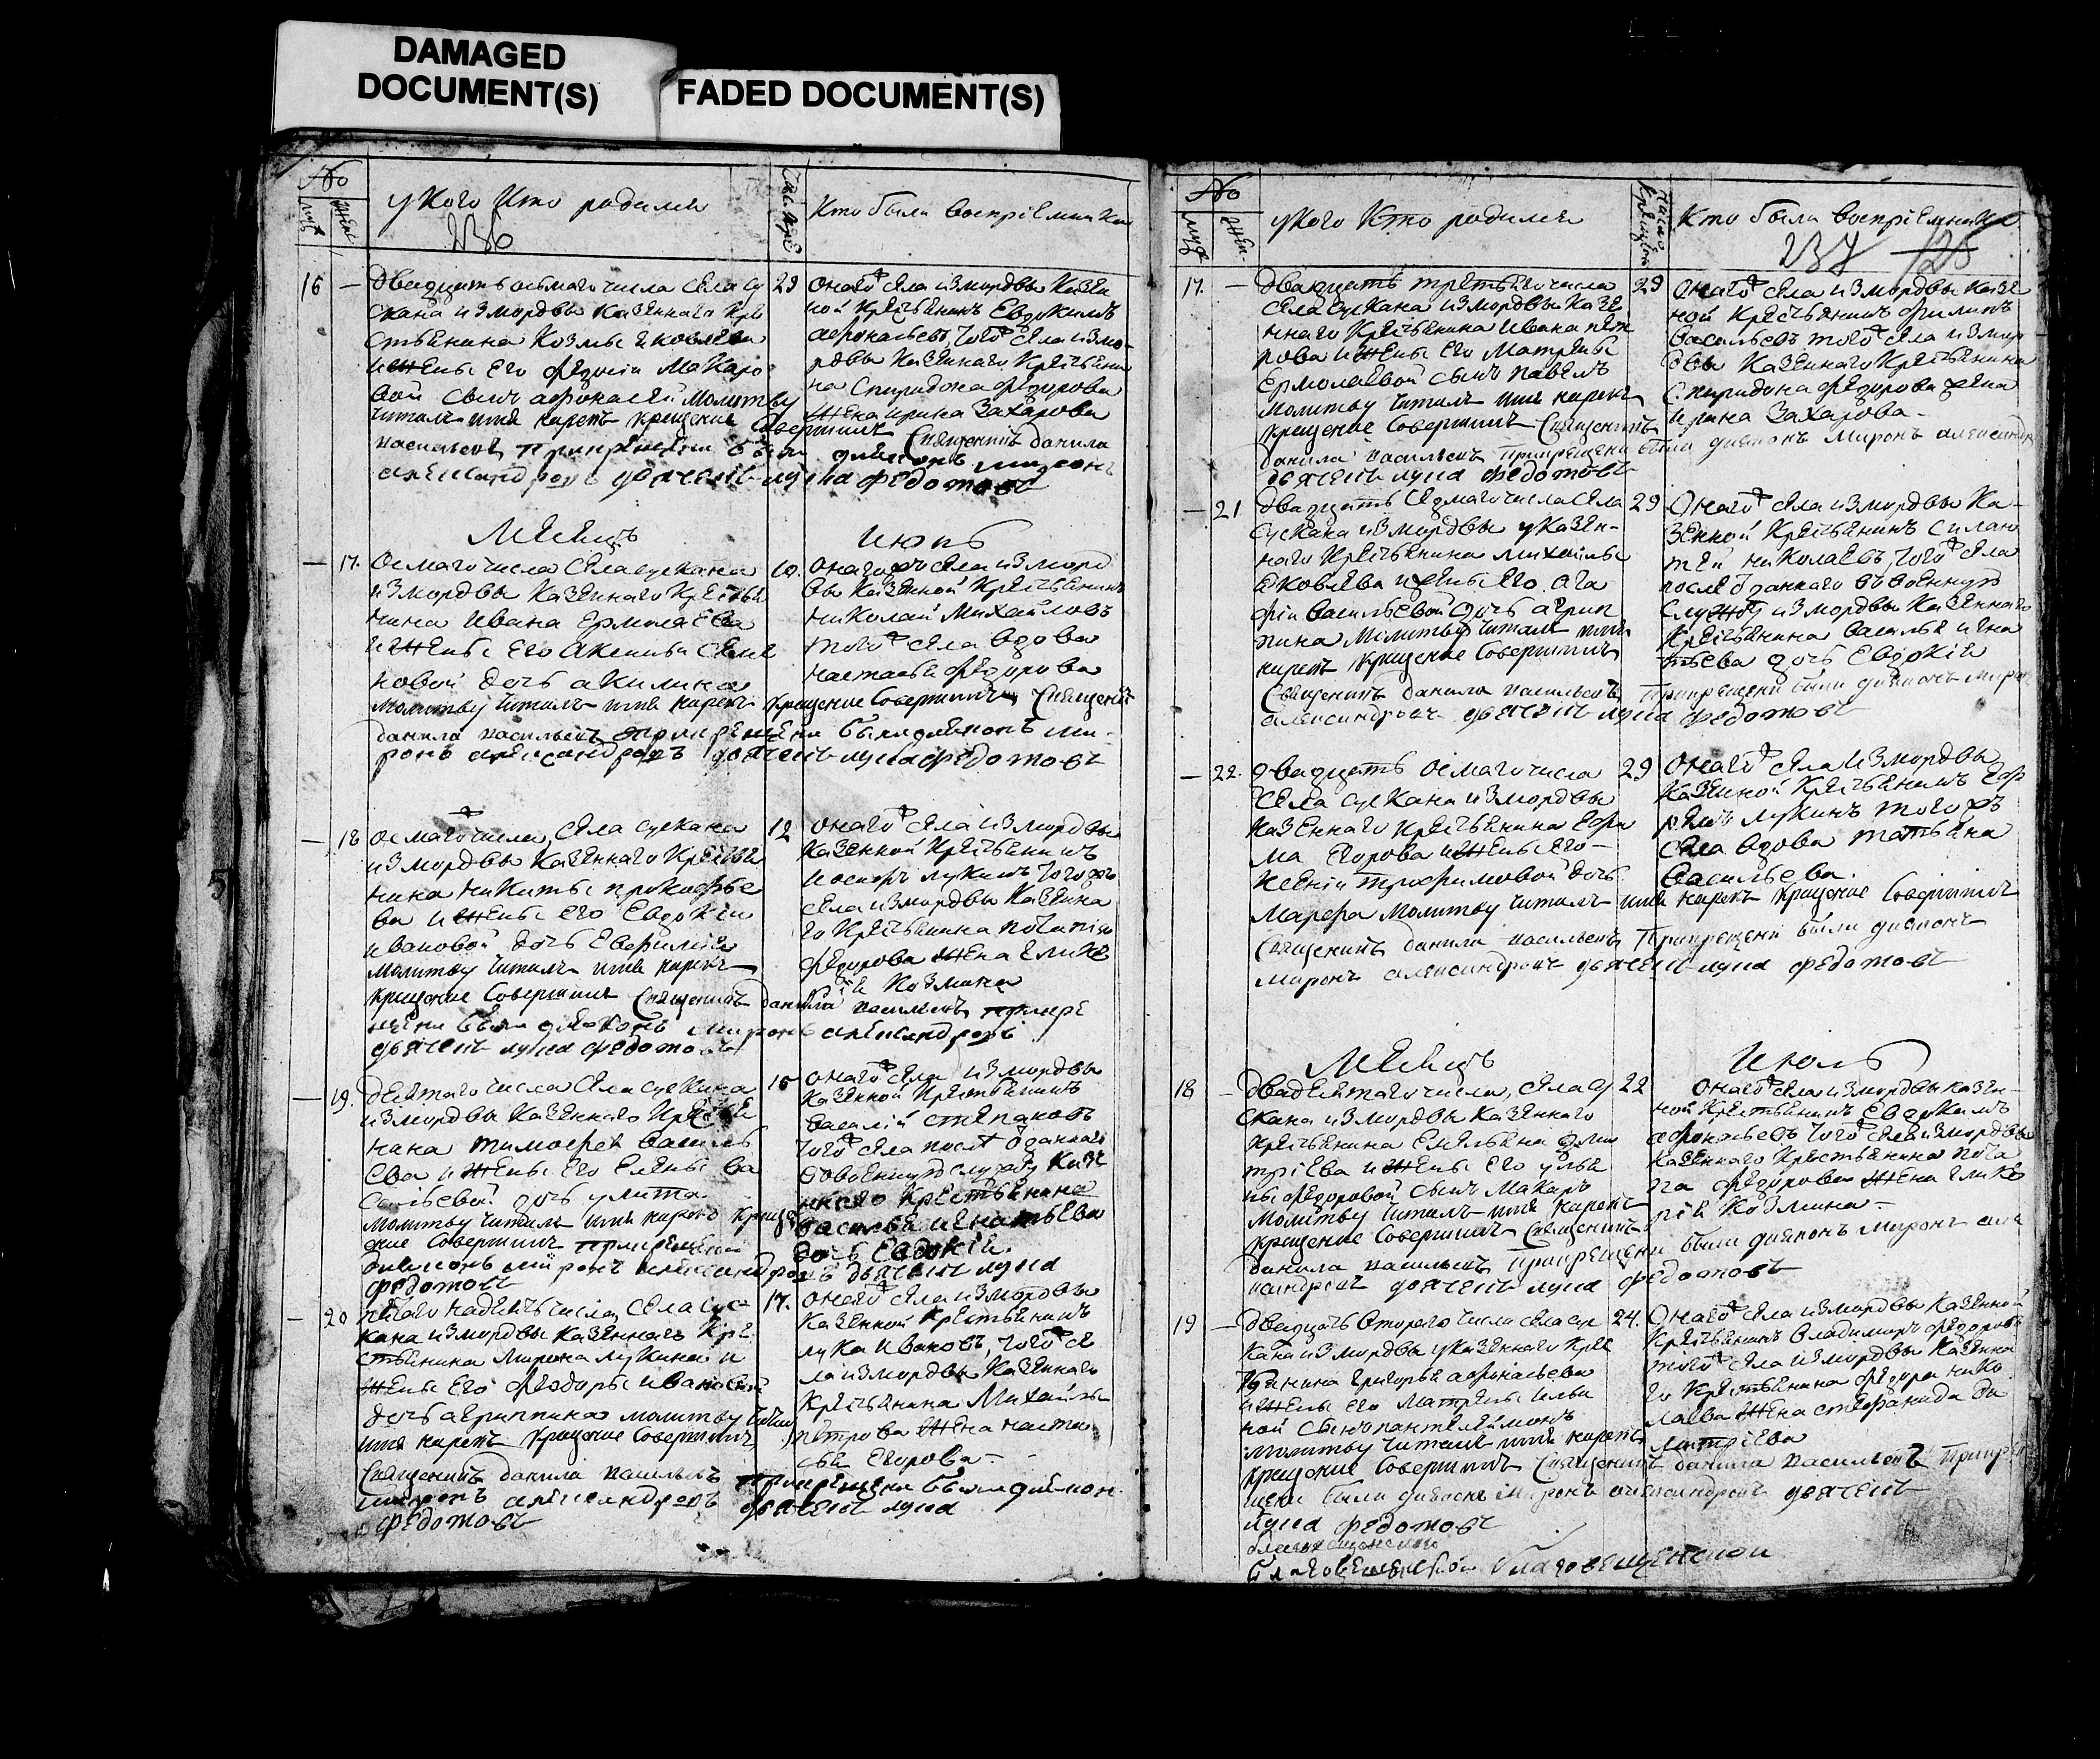 DAMAGED
DOCUMENT(S)
FADED DOCUMENT(S)
№
муж
жен
у кого кто родился
236
Кто были восприемники
16 — Двадцать осмаго числа села Су
скана из мордвы казеннаго Кре
стьянина Козмы Яковлева
и жены его Федосiи Макаро
вой сынъ Афонасей Молитву
читалъ имя нарекъ крещение Совершилъ Священникъ Данила
Васильевъ при крещении были дияконъ Миронъ
Александровъ дьячекъ Лука Федотовъ
29 онаго села из мордвы казен
ной Крестьянинъ Евдокимъ
Афонасьевъ, того села из мо-
рдвы казеннаго Крестьяни
на Спиридона Федорова
жена Ирина Захарова
Месяцъ Июнь
— 17. Осмаго числа села Сускана
из мордвы казеннаго Крестья
нина Ивана Ермолаева
и жены его Аксиньи Семе
новой дочь Акилина
Молитву читалъ имя нарекъ крещение Совершилъ Священникъ
Данила Васильевъ при крещении были дияконъ Ми-
ронъ Александровъ дьячекъ Лука Федотовъ
10. Онагожъ села из морд
вы казенной Крестьянинъ
Николай Михайловъ
того села вдова
Настасья Федорова
— 18 Осмаго числа села Сускана
из мордвы казеннаго Крестья
нина Никиты Прокофье
ва и жены его Евдокiи
Ивановой дочь Евфимия
Молитву читалъ имя нарекъ
крещение Совершилъ Священникъ Данила Васильевъ при кре
щении были дияконъ Миронъ Александровъ
дьячекъ Лука Федотовъ
12 Онаго села из мордвы
казенной Крестьянинъ
Иосифъ Лукинъ тогожъ
села из мордвы казенна
го Крестьянина
Федорова жена Глике
рiя Козмина
— 19. Десятаго числа села Сускана
из мордвы казеннаго Крестья
нина Тимофея Василь
ева и жены его Елены Ва
сильевой дочь Улита
Молитву читалъ имя нарекъ креще
ние Совершилъ при крещении
дияконъ Миронъ Александровъ дьячекъ Лука
Федотовъ
15 Онаго села из мордвы
казенной Крестьянинъ
Василiй Степановъ
того села после отданнаго
в военную службу казе
ннаго Крестьянина
Василья Игнатьева
дочь Евдокiя.
— 20 пятаго надесять числа, села Сус-
кана из мордвы казеннаго Кре
стьянина Мирона Лукина и
жены его Федоры Ивановой
дочь Агриппина молитву читалъ
имя нарекъ крещение Совершилъ
Священникъ Данила Васильевъ при крещении были дияконъ
Миронъ Александровъ дьячекъ Лука
Федотовъ
17. Онаго села из мордвы
казенной Крестьянинъ
Лука Ивановъ, того се
ла из мордвы казеннаго
Крестьянина Михайлы
Петрова жена Наста
сья Егорова —
№
муж
жен
у кого кто родился
число крещения
Кто были восприемники
237 125
17. — Двадцать третьяго числа
села Сускана из мордвы казе
ннаго Крестьянина Ивана Пет
рова и жены его Матрены
Ермолаевой сынъ Павелъ
Молитву читалъ имя нарекъ
крещение Совершилъ Священникъ
Данила Васильевъ при крещении были дияконъ Миронъ Александровъ
дьячекъ Лука Федотовъ
29 Онаго села из мордвы казе
ной Крестьянинъ Филипъ
Васильевъ того села из мор
двы казеннаго Крестьянина
Спиридона Федорова жена
Ирина Захарова —
— 21 Двадцать седмаго числа села
Сускана из мордвы у казен-
наго Крестьянина Михайлы
Яковлева и жены его Ага
фiи Васильевой дочь Агрип
пина Молитву читалъ имя
нарекъ крещение Совершилъ
Священникъ Данила Васильевъ при крещении были дияконъ Миронъ
Александровъ дьячекъ Лука Федотовъ
29 Онаго села из мордвы ка-
зенной Крестьянинъ Силан
тей Николаевъ, того села
после отданнаго въ военную
службу из мордвы казеннаго
Крестьянина Василья Игна
тьева дочь Евдокiя
— 22. Двадцать осмаго числа
села Сускана из мордвы
казеннаго Крестьянина Ефи
ма Егорова и жены его —
Ксенiи Трофимовой дочь
Марфа Молитву читалъ имя нарекъ крещение Совершилъ
Священникъ Данила Васильевъ При крещении были дияконъ
Миронъ Александровъ дьячекъ Лука Федотовъ
29 Онаго села из мордвы
казенной Крестьянинъ Еф
ремъ Лукинъ тогожъ
села вдова Татьяна
Васильева.
Месяцъ Июль
18 — Двадесятаго числа, села Су
скана из мордвы казеннаго
Крестьянина Емельяна Дми
трiева и жены его Улья
ны Федоровой сынъ Макаръ
Молитву читалъ имя нарекъ
крещение Совершилъ Священникъ
Данила Васильевъ При крещении были дияконъ Миронъ Алек
сандровъ дьячекъ Лука Федотовъ
22 Онаго села из мордвы казен-
ной Крестьянинъ Евдокимъ
Афонасьевъ того села из мордвы
казеннаго Крестьянина
Федорова жена Глике
рiя Козмина —
19 — Двадцать втораго числа села Сус
кана из мордвы у казеннаго Крес
тьянина Григорья Афонасьева
и жены его Матрены Ильи
ной сынъ Пантелеймонъ
Молитву читалъ имя нарекъ
крещение Совершилъ Священникъ Данила Васильевъ При кре
щении были дияконъ Миронъ Александровъ дьячекъ
Лука Федотовъ
24. Онаго села из мордвы казенной
Крестьянинъ Владимиръ Федоровъ
того села из мордвы казенна
го Крестьянина Федора Нико
лаева жена Стефанида Ди
митрiева
Благовещенской